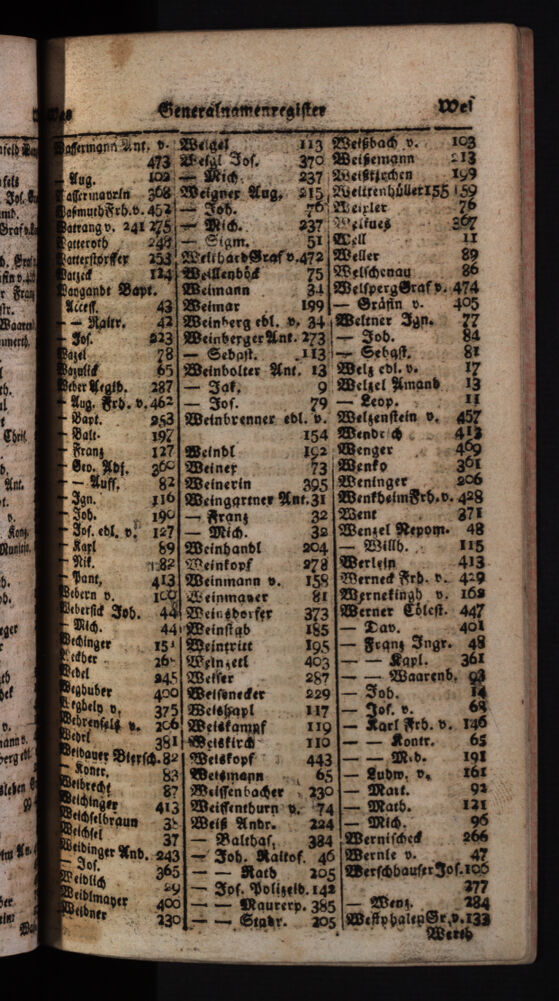 Generalnamenregister
Wes
Wassermann Ant. v.
473
— Aug. 102
Wassermayrin 368
Waßmuth Frh. v. 452
Watrang v. 241 275
Watteroth 248
Watterstorffer 253
Watzeck 124
Waygandt Bapt.
Access. 43
— — Raitr. 42
— Jos. 223
Wazel 78
Wazulick 65
Weber Aegid. 287
— Aug. Frh. v. 462
— Bapt. 253
— Balt. 197
— Franz 127
— Geo. Adj. 360
— — Auff. 82
— Ign. 116
— Joh. 190
— Jos. edl. v. 127
— Karl 89
— Nik. 182
— Pant. 413
Webern v. 100
Webersick Joh. 44
— Mich. 44
Wechinger 151
Weckher
Wedel 245
Weghuber 400
Weghely v. 375
Wehrenfels v. 206
Wehrl 381
Weidauer Biersch. 82
— Kontr. 83
Weibrecht 87
Weichinger 413
Weichselbraun
Weichsel 37
Weidinger And. 243
— Jos. 365
Weidlich 29
Weidlmayer 400
Weidner 230
Weigel 113
Weigl Jos. 370
— Mich. 237
Weigner Aug. 215
— Joh. 76
— Mich. 237
— Sigm. 51
Weikhard Graf v. 472
Weillenböck 75
Weimann 34
Weimar 199
Weinberg edl. v. 34
Weinberger Ant. 273
— Sebast. 113
Weinbolter Ant. 13
— Jak. 9
— Jos. 79
Weinbrenner edl. v.
154
Weindl 192
Weiner 73
Weinerin 395
Weingartner Ant. 31
— Franz 32
— Mich. 32
Weinhandl 204
Weinkopf 278
Weinmann v. 158
Weinmayer 81
Weinsdorfer 373
Weinstab 185
Weintritt 195
Weinzetl 403
Weiser 287
Weisenecker 229
Weishapl 117
Weiskampf 119
Weiskirch 110
Weiskopf 443
Weismann 65
Weissenbacher 230
Weissenthurn v. 74
Weiß Andr. 224
— Balthas. 384
— Joh. Raitof. 46
— — Rath 205
— Jos. Polizeid. 142
— — Maurerp. 385
— — Stadr. 205
Weißbach v. 103
Weißemann 213
Weißkirchen 199
Weittenhüller 155 159
Weixler 76
367
Well 11
Weller 89
Welschenau 86
Welsperg Graf v. 474
— Gräfin v. 405
Weltner Ign. 77
— Joh. 84
— Sebast. 81
Welz edl. v. 17
Welzel Amand 13
— Leop. 11
Welzenstein v. 457
Wendrich 413
Wenger 469
Wenko 361
Weninger 206
Wenkheim Frh. v. 428
Went 371
Wenzel Nepom. 48
— Willh. 115
Werlein 413
Werneck Frh. v. 429
Wernekingh v. 162
Werner Cölest. 447
— Dav. 401
— Franz Ingr. 48
— — Kapl. 361
— — Waarenh. 93
— Joh. 14
— Jos. v. 68
— Karl Frh. v. 146
— — Kontr. 65
— — Med. 191
— Ludw. v. 161
— Mart. 92
— Math. 121
— Mich. 96
Wernischeck 266
Wernle v. 47
Werschhauser Jos. 106
277
— Wenz. 284
Westphalen Gr. v. 133
Werth